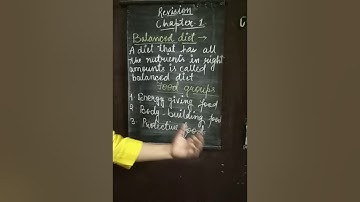 Revision
Chapter 1
Balanced diet →
A diet that has all
the nutrients in right
amounts is called
balanced diet
Food groups
1. Energy giving food
2. Body-building food
3. Protective food